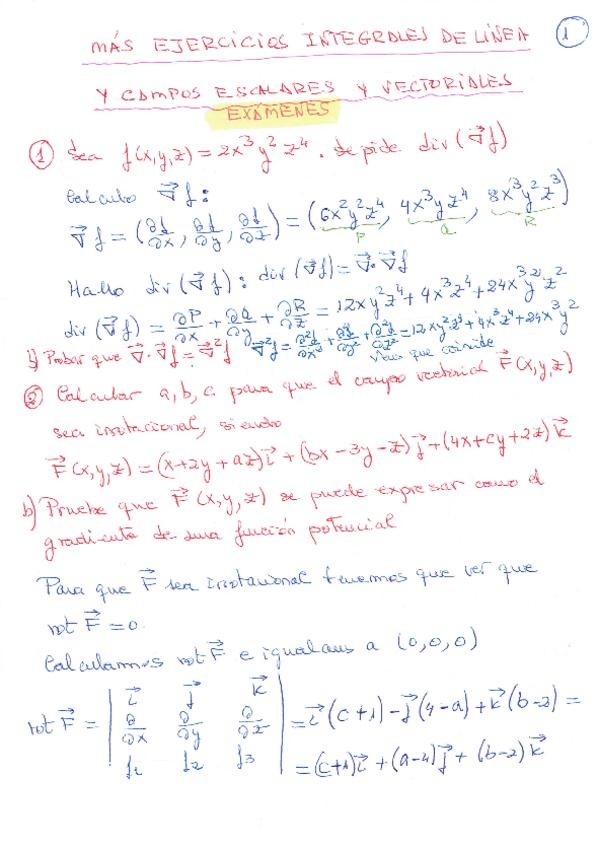 1
MÁS EJERCICIOS INTEGRALES DE LÍNEA
Y CAMPOS ESCALARES Y VECTORIALES
EXÁMENES
① Sea f(x,y,z) = 2x³y²z⁴. Se pide div(∇⃗f)
Calculo ∇⃗f:
∇⃗f = (∂f/∂x, ∂f/∂y, ∂f/∂z) = (6x²y²z⁴, 4x³yz⁴, 8x³y²z³)
P Q R
Hallo div(∇⃗f): div(∇⃗f) = ∇⃗·∇⃗f
div(∇⃗f) = ∂P/∂x + ∂Q/∂y + ∂R/∂z = 12xy²z⁴ + 4x³z⁴ + 24x³y²z²
b) Probar que ∇⃗·∇⃗f = ∇⃗²f ∇⃗²f = ∂²f/∂x² + ∂²f/∂y² + ∂²f/∂z² = 12xy²z⁴ + 4x³z⁴ + 24x³y²z²
Veus que coincide
② Calcular a, b, c para que el campo vectorial F⃗(x,y,z)
sea irrotacional, siendo
F⃗(x,y,z) = (x+2y+az)i⃗ + (bx-3y-z)j⃗ + (4x+cy+2z)k⃗
b) Pruebe que F⃗(x,y,z) se puede expresar como el
gradiente de una función potencial
Para que F⃗ sea irrotacional tenemos que ver que
rot F⃗ = 0
Calculamos rot F⃗ e igualamos a (0,0,0)
rot F⃗ = | i⃗ j⃗ k⃗ |
| ∂/∂x ∂/∂y ∂/∂z | = i⃗(c+1) - j⃗(4-a) + k⃗(b-2) =
| f₁ f₂ f₃ | = (c+1)i⃗ + (a-4)j⃗ + (b-2)k⃗